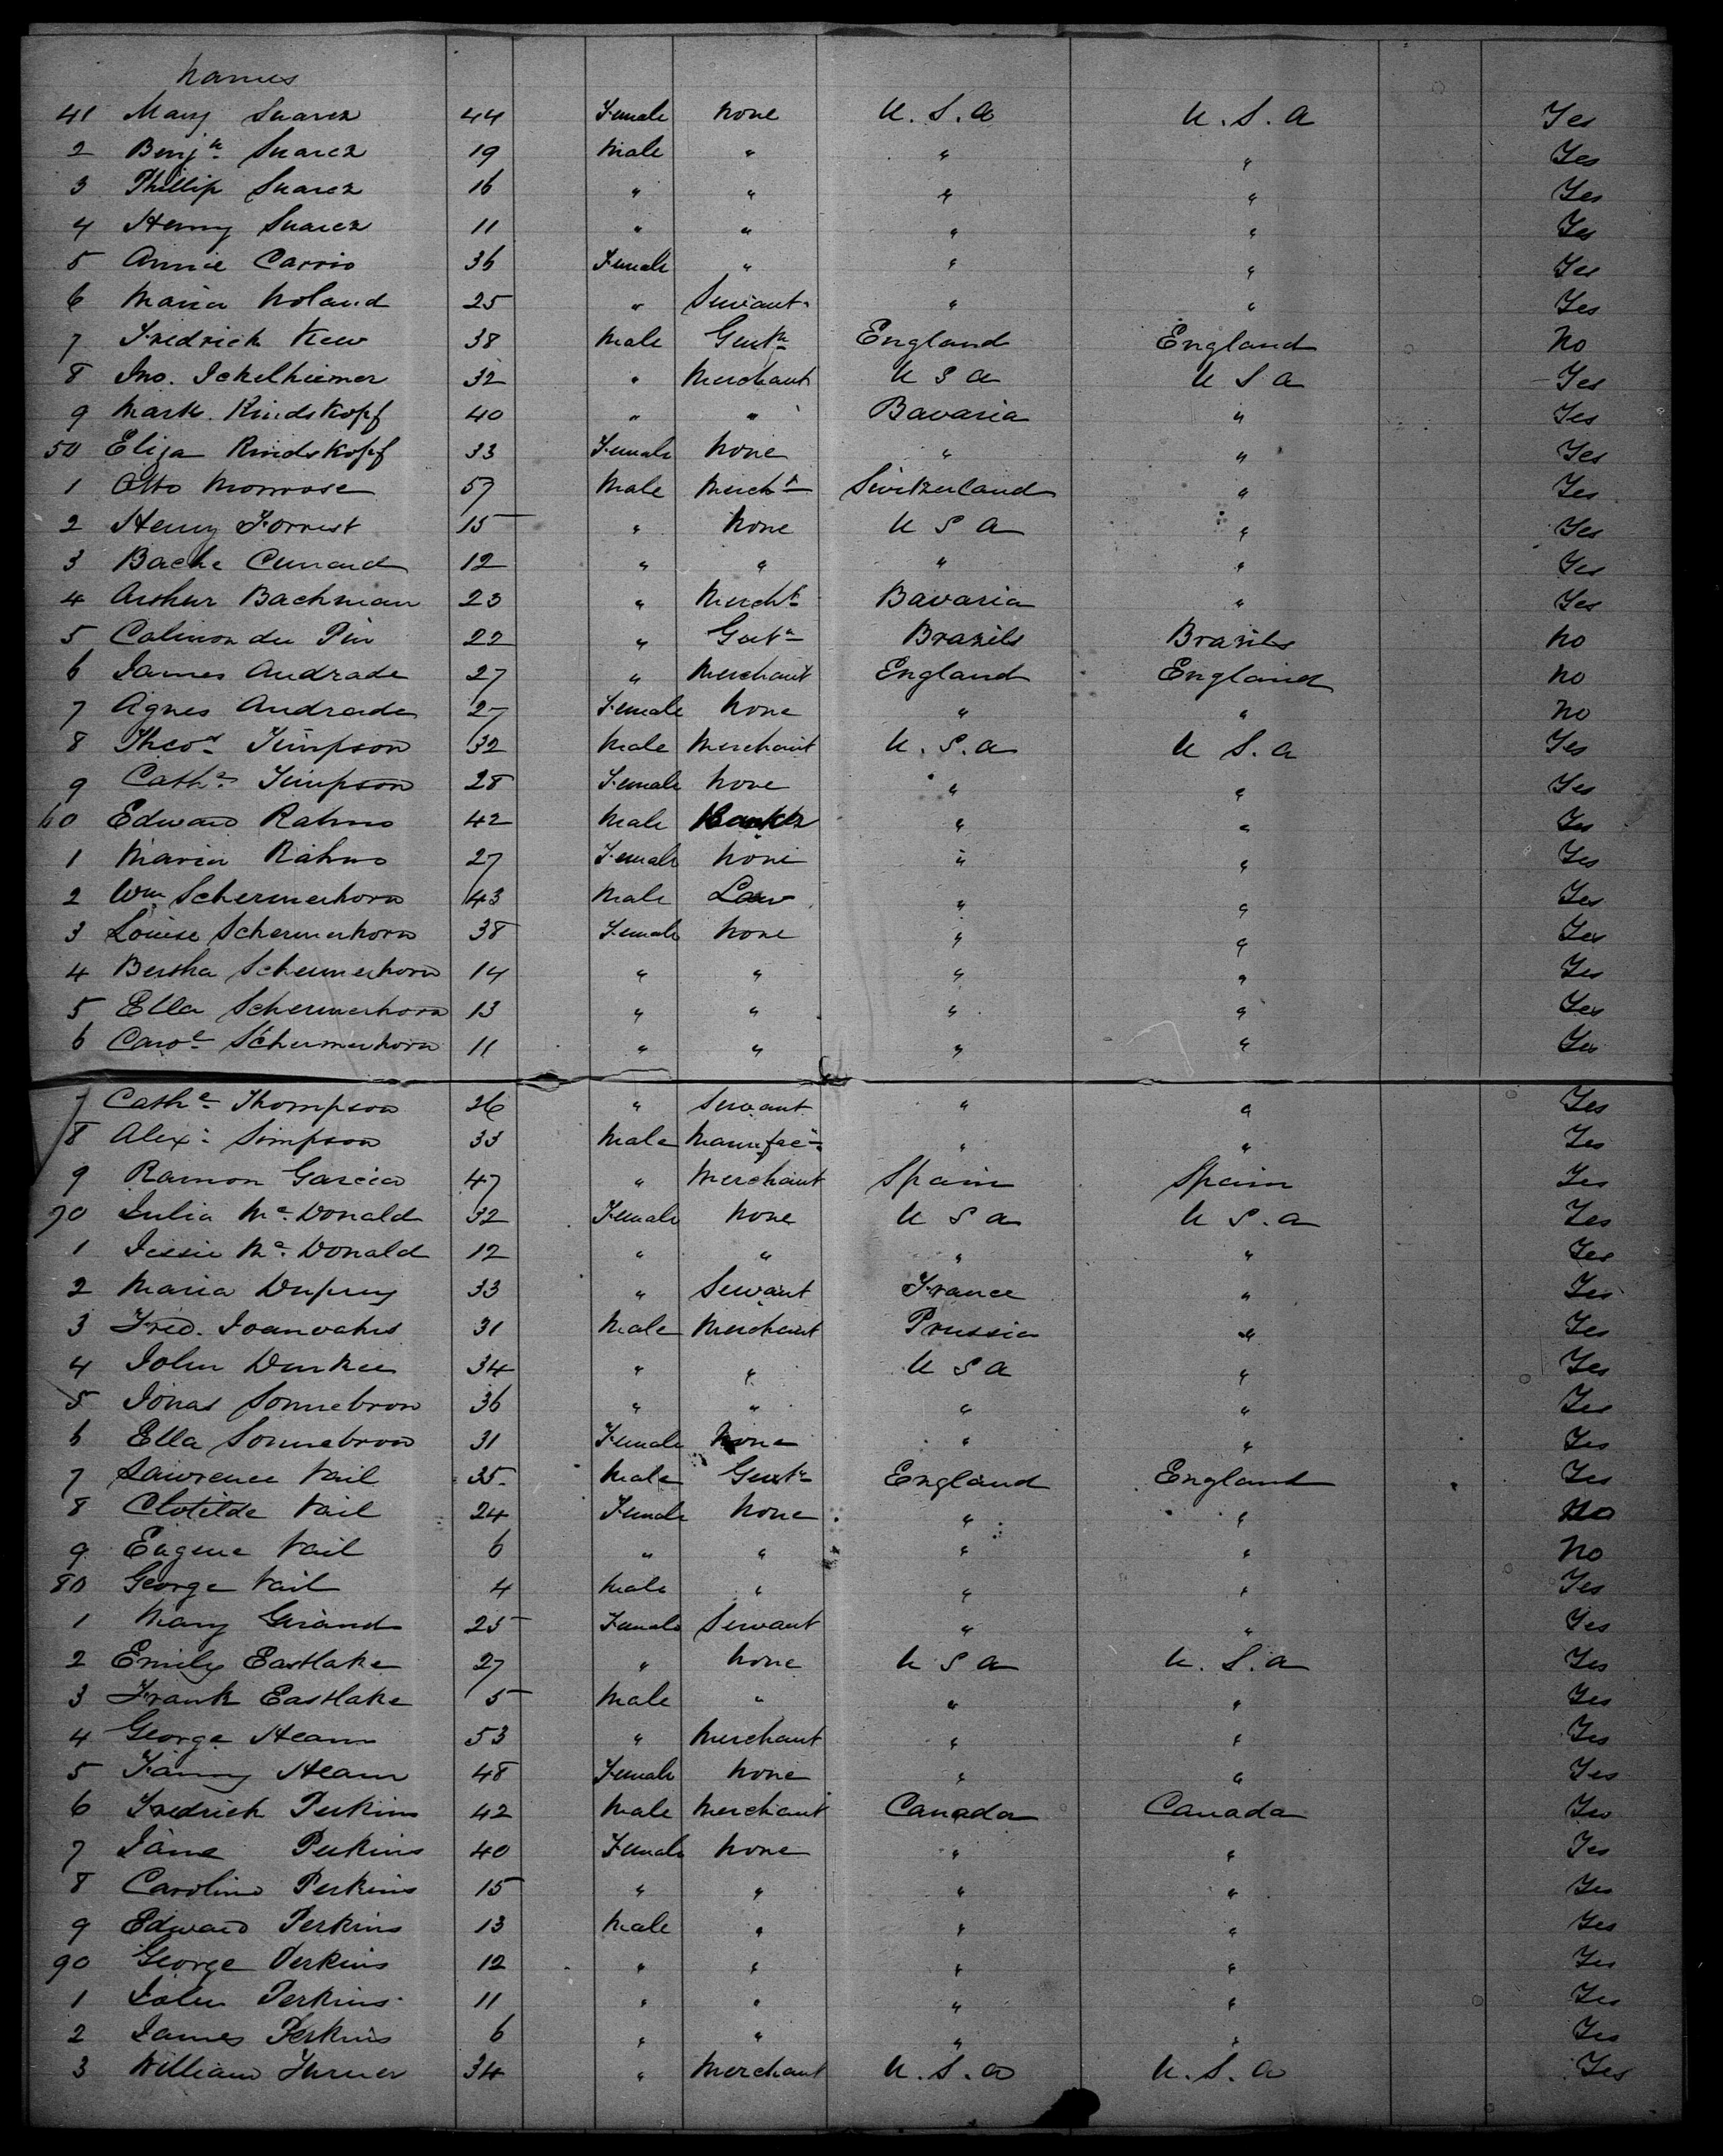 Names
41 Mary Suarez 44 Female None U.S.A U.S.A Yes
2 Benjn Suarez 19 Male " " " Yes
3 Phillip Suarez 16 " " " " Yes
4 Henry Suarez 11 " " " " Yes
5 Annie Carrio 36 Female " " " Yes
6 Maria Noland 25 " Servant " " Yes
7 Fredrick Kew 38 Male Gentn England England No
8 Jno. Ickelhiemer 32 " Merchant U S A U S A Yes
9 Mark Rindskopf 40 " " Bavaria " Yes
50 Eliza Rindskopf 33 Female None " " Yes
1 Otto Monrose 57 Male Mercht Switzerland " Yes
2 Henry Forrest 15 " None U S A " Yes
3 Bache Cunard 12 " " " " Yes
4 Arthur Bachman 23 " Mercht Bavaria " Yes
5 Calmon du Pin 22 " Gentn Brazils Brazils No
6 James Andrade 27 " Merchant England England No
7 Agnes Andrade 27 Female None " " No
8 Theod Timpson 32 Male Merchant U.S.A U S.A Yes
9 Cathe Timpson 28 Female None " " Yes
60 Edward Rahm 42 Male Banker " " Yes
1 Maria Rahm 27 Female None " " Yes
2 Wm Schermerhorn 43 Male Law " " Yes
3 Louise Schermerhorn 38 Female None " " Yes
4 Bertha Schermerhorn 14 " " " " Yes
5 Ella Schermerhorn 13 " " " " Yes
6 Caroe Schermerhorn 11 " " " " Yes
7 Cathe Thompson 26 " Servant " " Yes
8 Alexr Simpson 33 Male Manufacr " " Yes
9 Ramon Garcia 47 " Merchant Spain Spain Yes
70 Julia Mc Donald 32 Female None U S A U S.A Yes
1 Jessie Mc Donald 12 " " " " Yes
2 Maria Dupuy 33 " Servant France " Yes
3 Fred. 31 Male Merchant Prussia " Yes
4 John Durkee 34 " " U S A " Yes
5 Jonas Sonnebron 36 " " " " Yes
6 Ella Sonnebron 31 Female None " " Yes
7 Lawrence Vail 35 Male Gentn England England Yes
8 Clotilde Vail 24 Female None " " No
9 Eugene Vail 6 " " " " No
80 George Vail 4 Male " " " Yes
1 Mary Girand 25 Female Servant " " Yes
2 Emily Eastlake 27 " None U S A U.S.A Yes
3 Frank Eastlake 5 Male " " " Yes
4 George Hearn 53 " Merchant " " Yes
5 Fanny Hearn 48 Female None " " Yes
6 Fredrick Perkins 42 Male Merchant Canada Canada Yes
7 Jane Perkins 40 Female None " " Yes
8 Caroline Perkins 15 " " " " Yes
9 Edward Perkins 13 Male " " " Yes
90 George Perkins 12 " " " " Yes
1 John Perkins 11 " " " " Yes
2 James Perkins 6 " " " " Yes
3 William Turner 34 " Merchant U.S.A U.S.A Yes